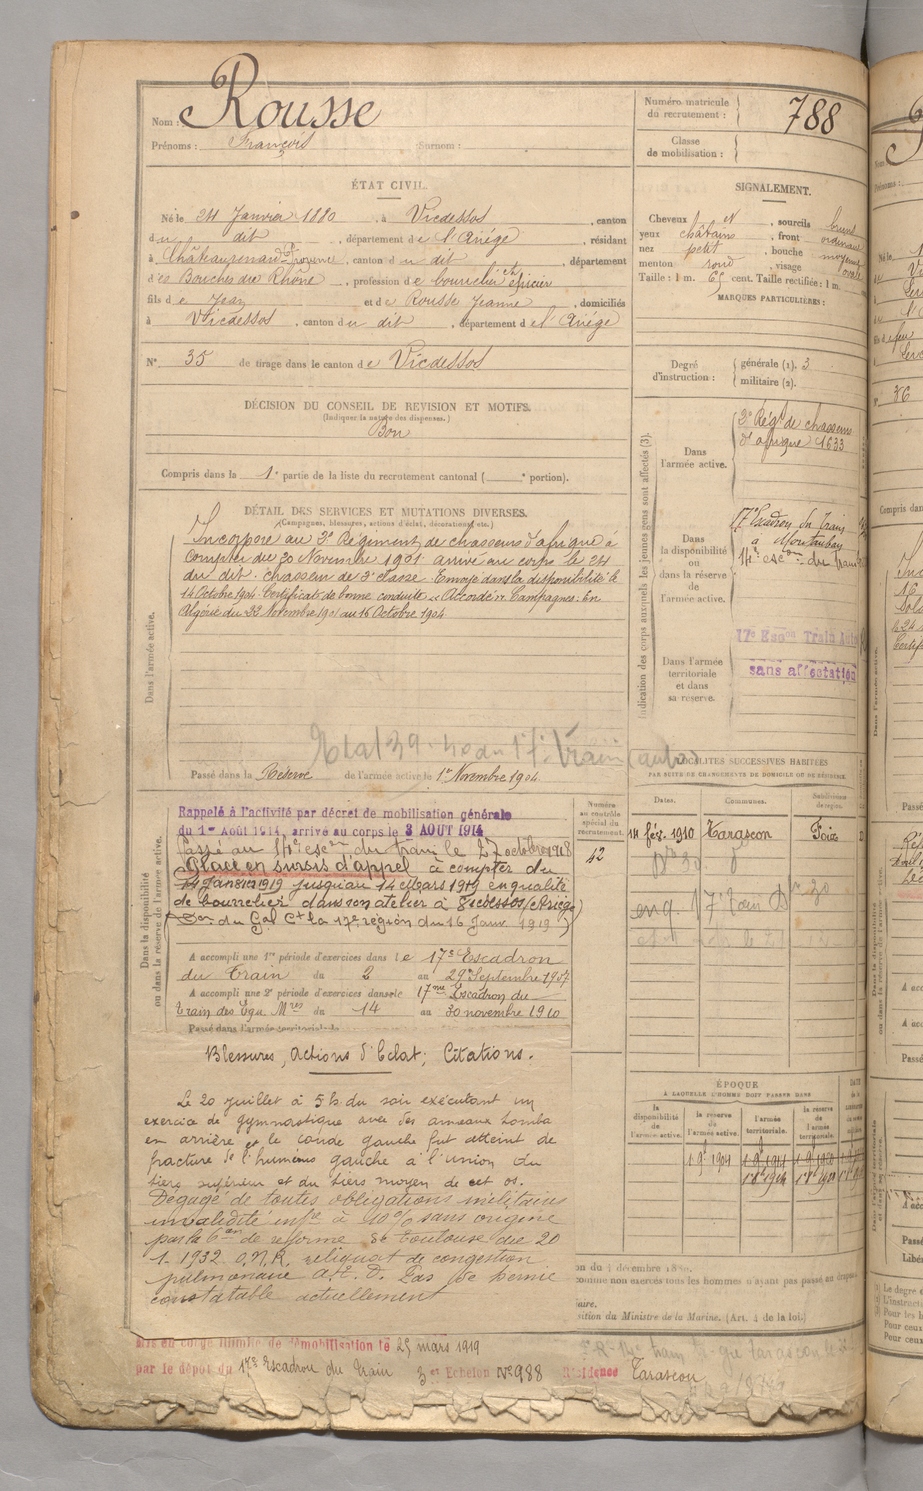 Nom : Rousse
Prénoms : François Surnom :
Numéro matricule du recrutement : 788
Classe de mobilisation :
ÉTAT CIVIL.
Né le 24 Janvier 1880, à Vicdessos, canton
du dit, département de l'Ariége, résidant
à Châteaurenard Provence, canton du dit, département
des Bouches du Rhône, profession de bourrelier épicier
fils de Jean et de Rousse Jeanne, domiciliés
à Vicdessos, canton du dit, département de l'Ariége
N° 35 de tirage dans le canton de Vicdessos
SIGNALEMENT.
Cheveux et, sourcils bruns
yeux châtains, front ordinaire
nez petit, bouche moyenne
menton rond, visage ovale
Taille : 1 m. 65 cent. Taille rectifiée : 1 m.
MARQUES PARTICULIÈRES :
Degré d'instruction : générale (1). 3
militaire (2).
DÉCISION DU CONSEIL DE REVISION ET MOTIFS.
(Indiquer la nature des dispenses.)
Bon
Compris dans la 1e partie de la liste du recrutement cantonal ( e portion).
DÉTAIL DES SERVICES ET MUTATIONS DIVERSES.
(Campagnes, blessures, actions d'éclat, décorations, etc.)
Dans l'armée active.
Incorporé au 3e Régiment de chasseurs d'afrique à
compter du 20 Novembre 1901 arrivé au corps le 24
du dit. chasseur de 2e classe. Envoyé dans la disponibilité le
14 Octobre 1904. Certificat de bonne conduite "Accordé". Campagnes : En
Algérie du 22 Novembre 1901 au 16 Octobre 1904
Passé dans la Réserve de l'armée active le 1er Novembre 1904
Indication des corps auxquels les jeunes gens sont affectés (3).
Dans l'armée active.
3e Régt de chasseurs
d'afrique 1633
Dans la disponibilité ou dans la réserve de l'armée active.
17e Escadron du Train
à Montauban
14e escon du train
Dans l'armée territoriale et dans sa réserve.
17e Escon Train Auto
sans affectation
LOCALITÉS SUCCESSIVES HABITÉES
PAR SUITE DE CHANGEMENTS DE DOMICILE OU DE RÉSIDENCE.
Dates. Communes. Subdivisions de région.
14 fév. 1910 Tarascon Foix
Numéro au contrôle spécial du recrutement.
42
Dans la disponibilité ou dans la réserve de l'armée active.
Rappelé à l'activité par décret de mobilisation générale
du 1er Août 1914, arrivé au corps le 3 AOUT 1914
Passé au 14e escon du train le 27 octobre 1918
Placé en sursis d'appel à compter du
14 janvier 1919 jusqu'au 14 Mars 1919 en qualité
de bourrelier dans son atelier à Vicdessos (Ariège)
du Gal Ct la 17e région du 16 Janv 1919)
A accompli une 1re période d'exercices dans le 17e Escadron
du Train du 2 au 29 Septembre 1907
A accompli une 2e période d'exercices dans le 17me Escadron du
Train des Equ Mres du 14 au 30 novembre 1910
Passé dans l'armée territoriale
Blessures, Actions d'Eclat, Citations.
Le 20 juillet à 5 h du soir exécutant un
exercice de gymnastique avec des anneaux tomba
en arrière et le coude gauche fut atteint de
fracture de l'humérus gauche à l'union du
tiers supérieur et du tiers moyen de cet os.
Dégagé de toutes obligations militaires
invalidité infre à 10% sans origine
par la 6e on de réforme de Toulouse du 20
1. 1932 O.N.R. reliquat de congestion
pulmonaire Pas de hernie
constatable actuellement
ÉPOQUE
À LAQUELLE L'HOMME DOIT PASSER DANS
la disponibilité de l'armée active. la réserve de l'armée active. l'armée territoriale. la réserve de l'armée territoriale.
sition du Ministre de la Marine. (Art. 4 de la loi.)
Mis en congé illimité de démobilisation le 25 mars 1919
par le dépôt du 17e Escadron du Train 3e Echelon N° 988 Résidence Tarascon